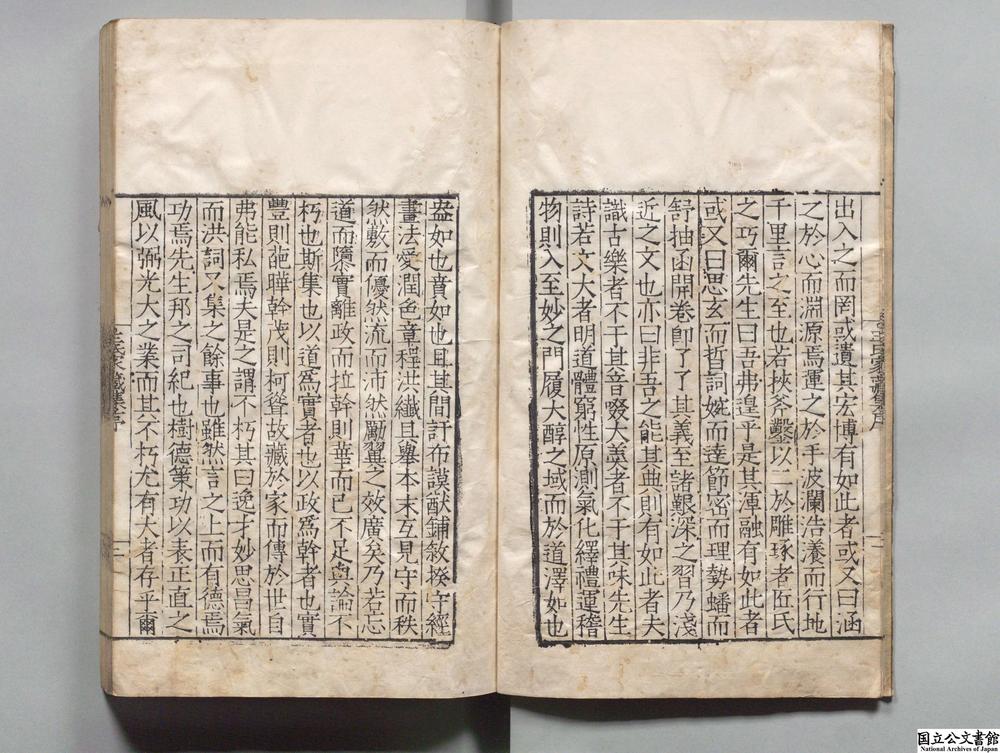 出入之而罔或遺其宏博有如此者或又曰涵
之於心而淵源焉運之於手波瀾浩瀁而行地
千里言之至也若挾斧鑿以一於雕琢者匠氏
之巧爾先生曰吾弗遑乎是其渾融有如此者
或又曰思玄而哲詞婉而達節密而理勢蟠而
舒抽函開卷卽了了其義至諸艱深之習乃淺
近之文也亦曰非吾之能其典則有如此者夫
識古樂者不于其音啜大羹者不于其味先生
詩若文大者明道體窮性原測氣化繹禮運稽
物則入至妙之門履大醇之域而於道澤如也
盎如也賁如也且其間訏布謨猷鋪敘揆守經
畫法愛潤色章程洪纖具舉本末互見守而秩
然敷而優然流而沛然勵翼之效廣矣乃若忘
道而隳實離政而拉幹則華而已不足與論不
朽也斯集也以道爲實者也以政爲幹者也實
豐則葩曄幹茂則柯聳故藏於家而傳於世自
弗能私焉夫是之謂不朽其曰逸才妙思昌氣
而洪詞又集之餘事也雖然言之上而有德焉
功焉先生邦之司紀也樹德策功以表正直之
風以弼光大之業而其不朽尤有大者存乎爾
王氏家藏集序
二
王氏家藏集序
三
国立公文書館
National Archives of Japan